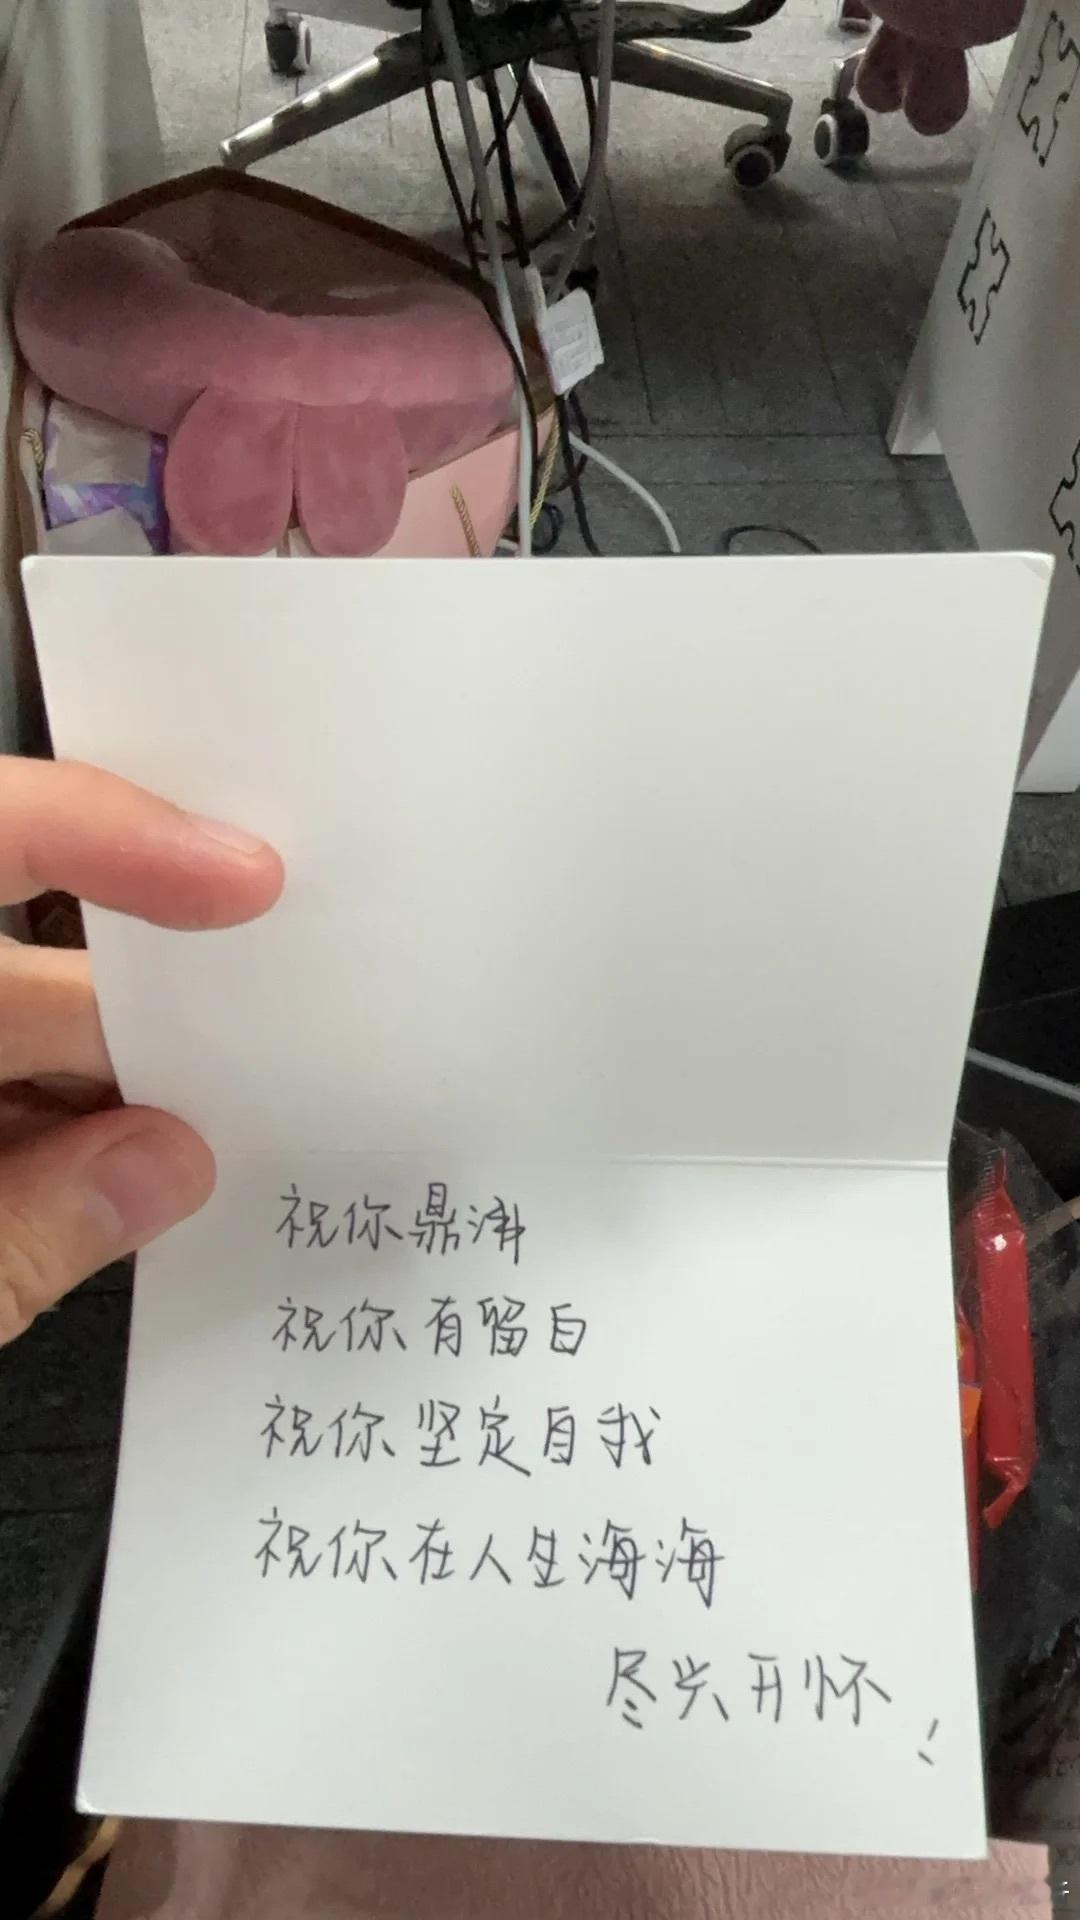 祝你鼎沸
祝你有留白
祝你坚定自我
祝你在人生海海
尽兴开怀!